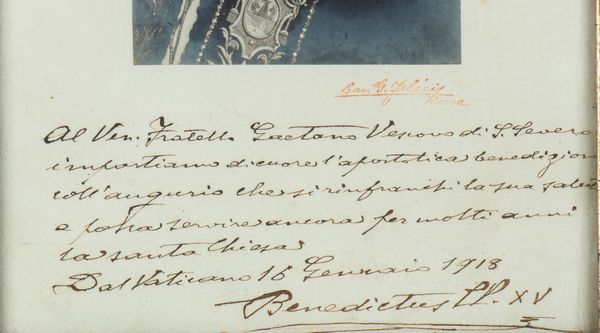 Cav. G. Felici
Roma
Al Ven. Fratello Gaetano Vescovo di S. Severo
impartiamo di cuore l'apostolica benedizione
coll'augurio che si rinfranchi la sua salute
e possa servire ancora per molti anni
la santa Chiesa
Dal Vaticano 16 Gennaio 1918
Benedictus PP. XV